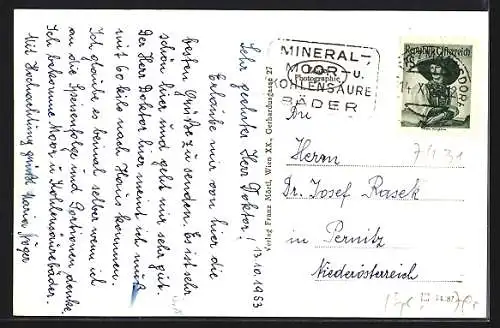 Sehr geehrter Herr Doktor! 13.10.1953
Erlaube mir von hier die
besten Grüße zu senden. Es ist sehr
schön hier und geht mir sehr gut.
Der Herr Doktor hier meint ich muß
mit 60 kilo nach Hause kommen.
Ich glaube es beinal selber wenn ich
an die Speisenfolge und Portionen denke.
Ich bekomme Moor u Kohlensäurebäder.
Mit Hochachtung grüßt Maria
Verlag Franz Mörtl, Wien XX., Gerhardusgasse 27
Photographie
MINERAL-
MOOR- u.
KOHLENSÄURE
BÄDER
Republik Österreich
DORF
An
Herrn
Dr. Josef Rasek
in Pernitz
Niederösterreich